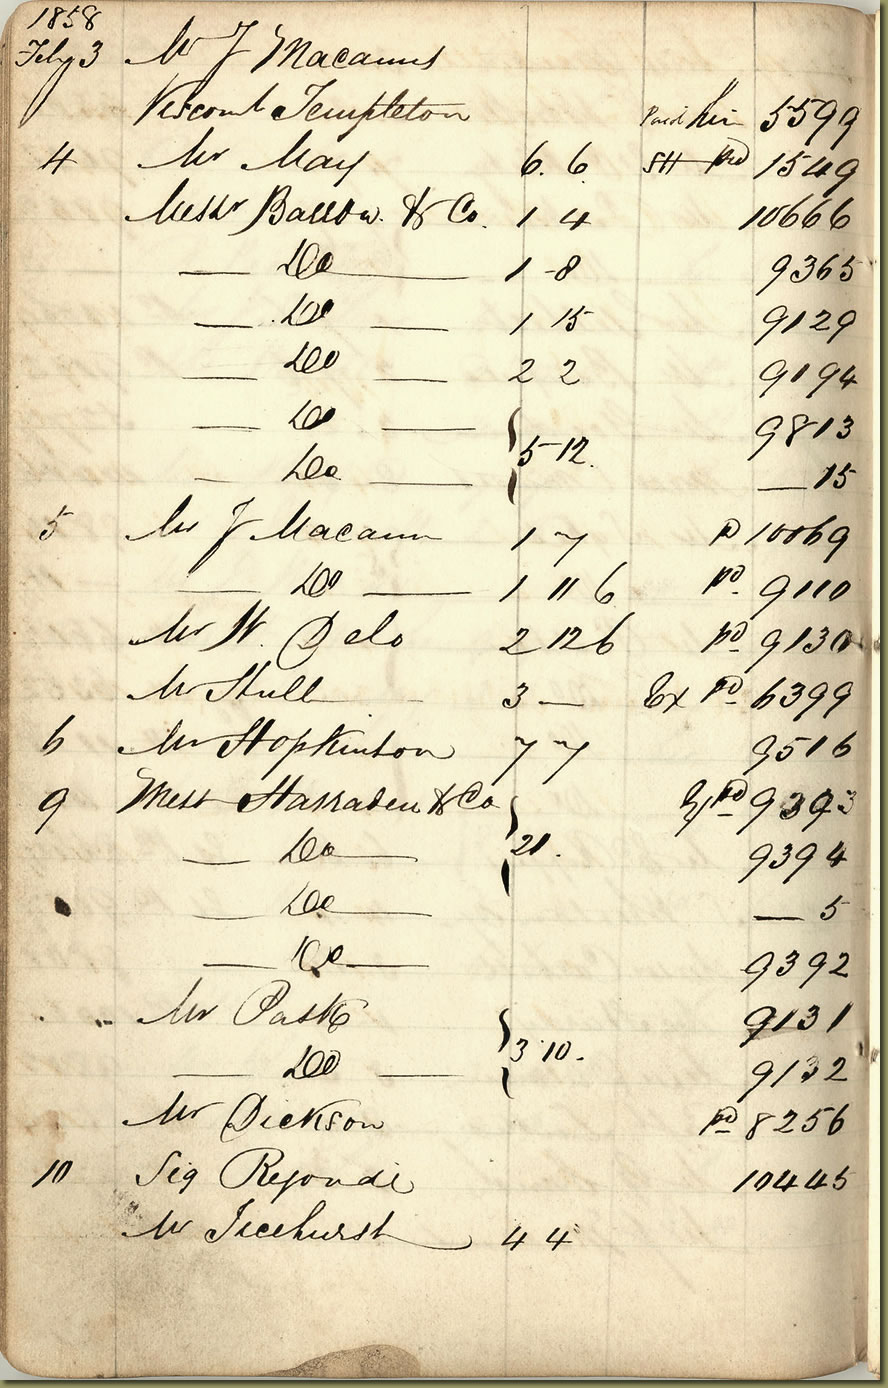 1858
Feby 3 Mr J Macanns
Viscomt Templeton Paid 5599
4 Mr May 6. 6 SH Pd 1549
Messr Barrow & Co. 1 4 10666
— Do — 1 -8 9365
— Do — 1 15 9129
— Do — 2 2 9194
— Do — 9813
— Do — } 5-12. — 15
5 Mr J Macann 1 7 pd 10069
— Do — 1 11 6 pd. 9110
Mr W. Delo 2 12 6 pd 9130
Mr Stull 3 — Ex Pd 6399
6 Mr Hopkinson 7 7 9516
9 Mess Haslraden & Co pd 9393
— Do — } 21. 9394
— Do — — 5
— Do — 9392
Mr Pask 9131
— Do — } 3 10. 9132
Mr Dickson pd 8256
10 Sig Regondi 10445
Mr Ticehurst 4 4